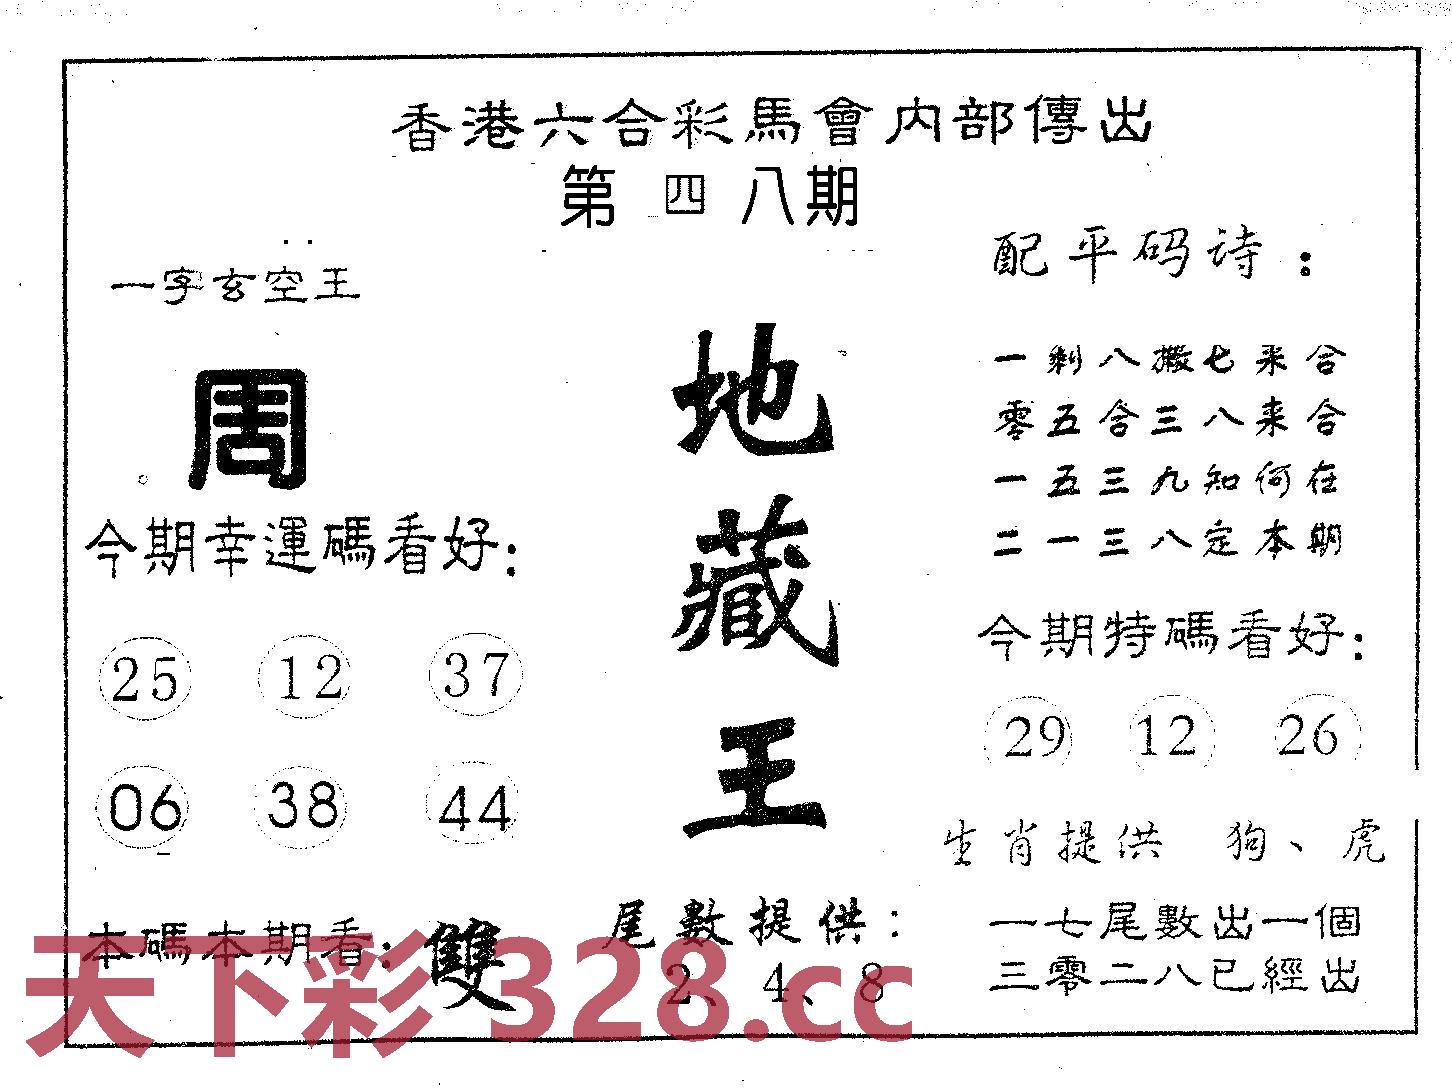 香港六合彩馬會内部傳出
第四八期
一字玄空王
周
今期幸運碼看好:
25 12 37
06 38 44
本碼本期看: 雙
地
藏
王
尾數提供:
2、4、8
配平码诗:
一剩八搬七来合
零五合三八来合
一五三九知何在
二一三八定本期
今期特碼看好:
29 12 26
生肖提供 狗、虎
一七尾數出一個
三零二八已經出
天下彩 328.cc